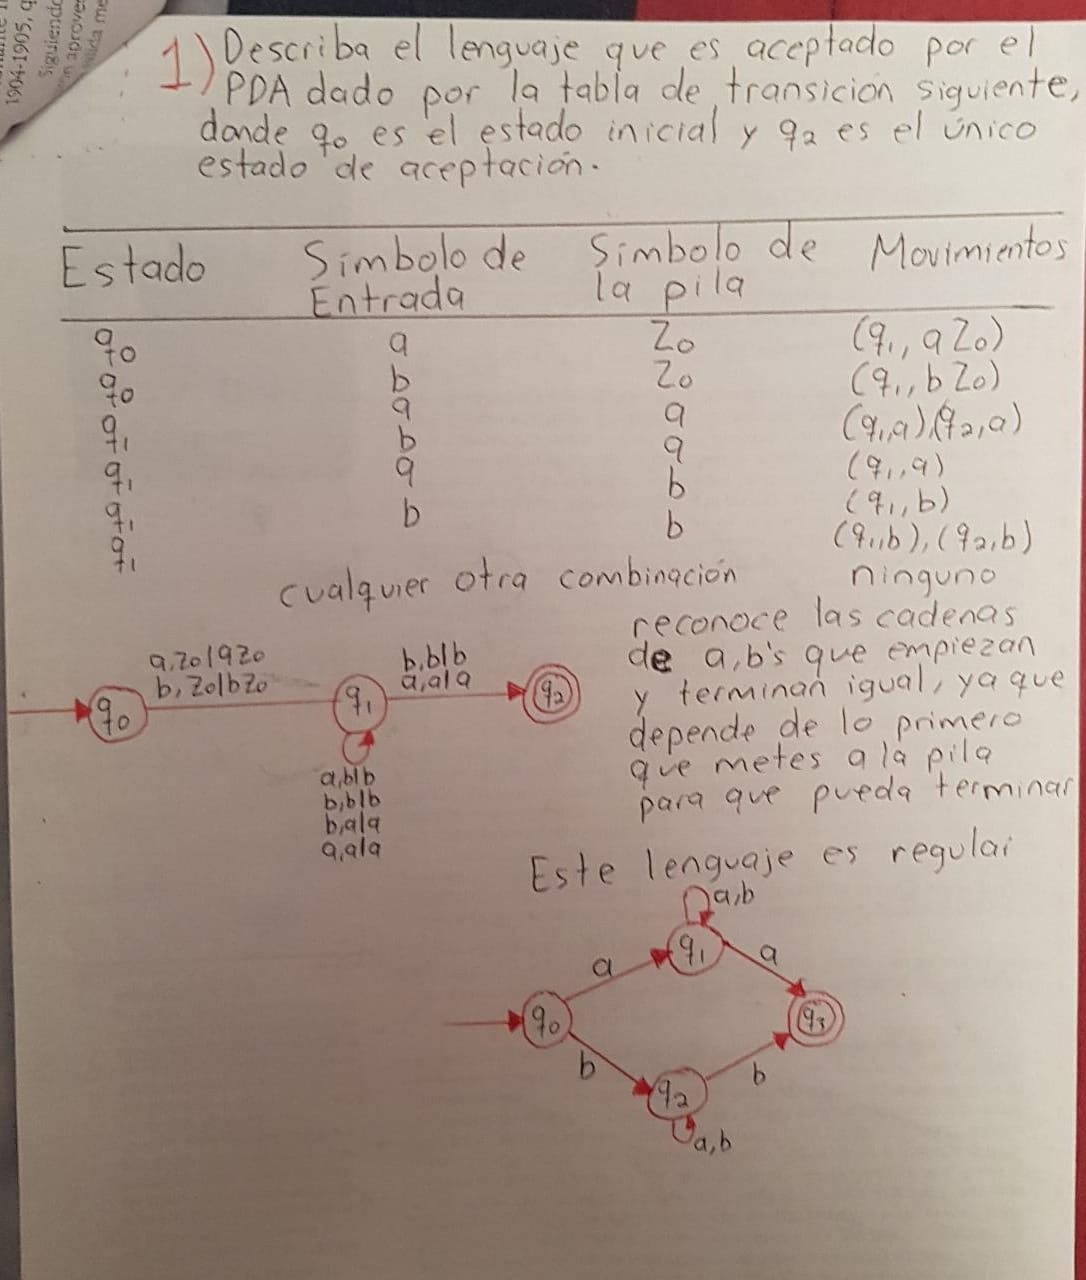 1904-1905, q
Siguiendo
n aprove
ida me
1) Describa el lenguaje que es aceptado por el
PDA dado por la tabla de transición siguiente,
donde q0 es el estado inicial y q2 es el único
estado de aceptación.
Estado Símbolo de Entrada Símbolo de la pila Movimientos
q0 a Z0 (q1, a Z0)
q0 b Z0 (q1, b Z0)
q1 a a (q1,a),(q2,a)
q1 b a (q1,a)
q1 a b (q1,b)
q1 b b (q1,b),(q2,b)
cualquier otra combinación ninguno
reconoce las cadenas
de a,b's que empiezan
y terminan igual, ya que
depende de lo primero
que metes a la pila
para que pueda terminar
a,Z0|aZ0
b,Z0|bZ0
b,b|b
a,a|a
q0
q1
q2
a,b|b
b,b|b
b,a|a
a,a|a
Este lenguaje es regular
a,b
a
q1
a
q0
q3
b
q2
b
a,b